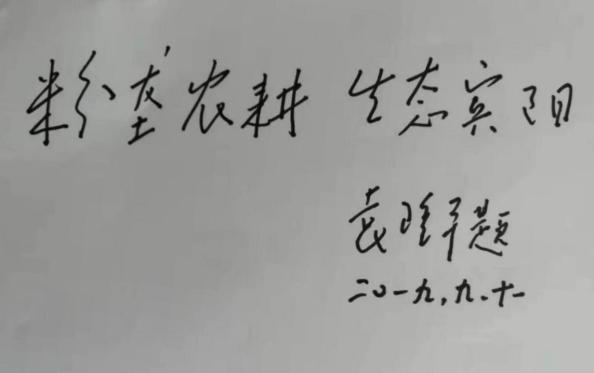 粉垄农耕 生态宾阳
袁隆平题
二〇一九.九.十一